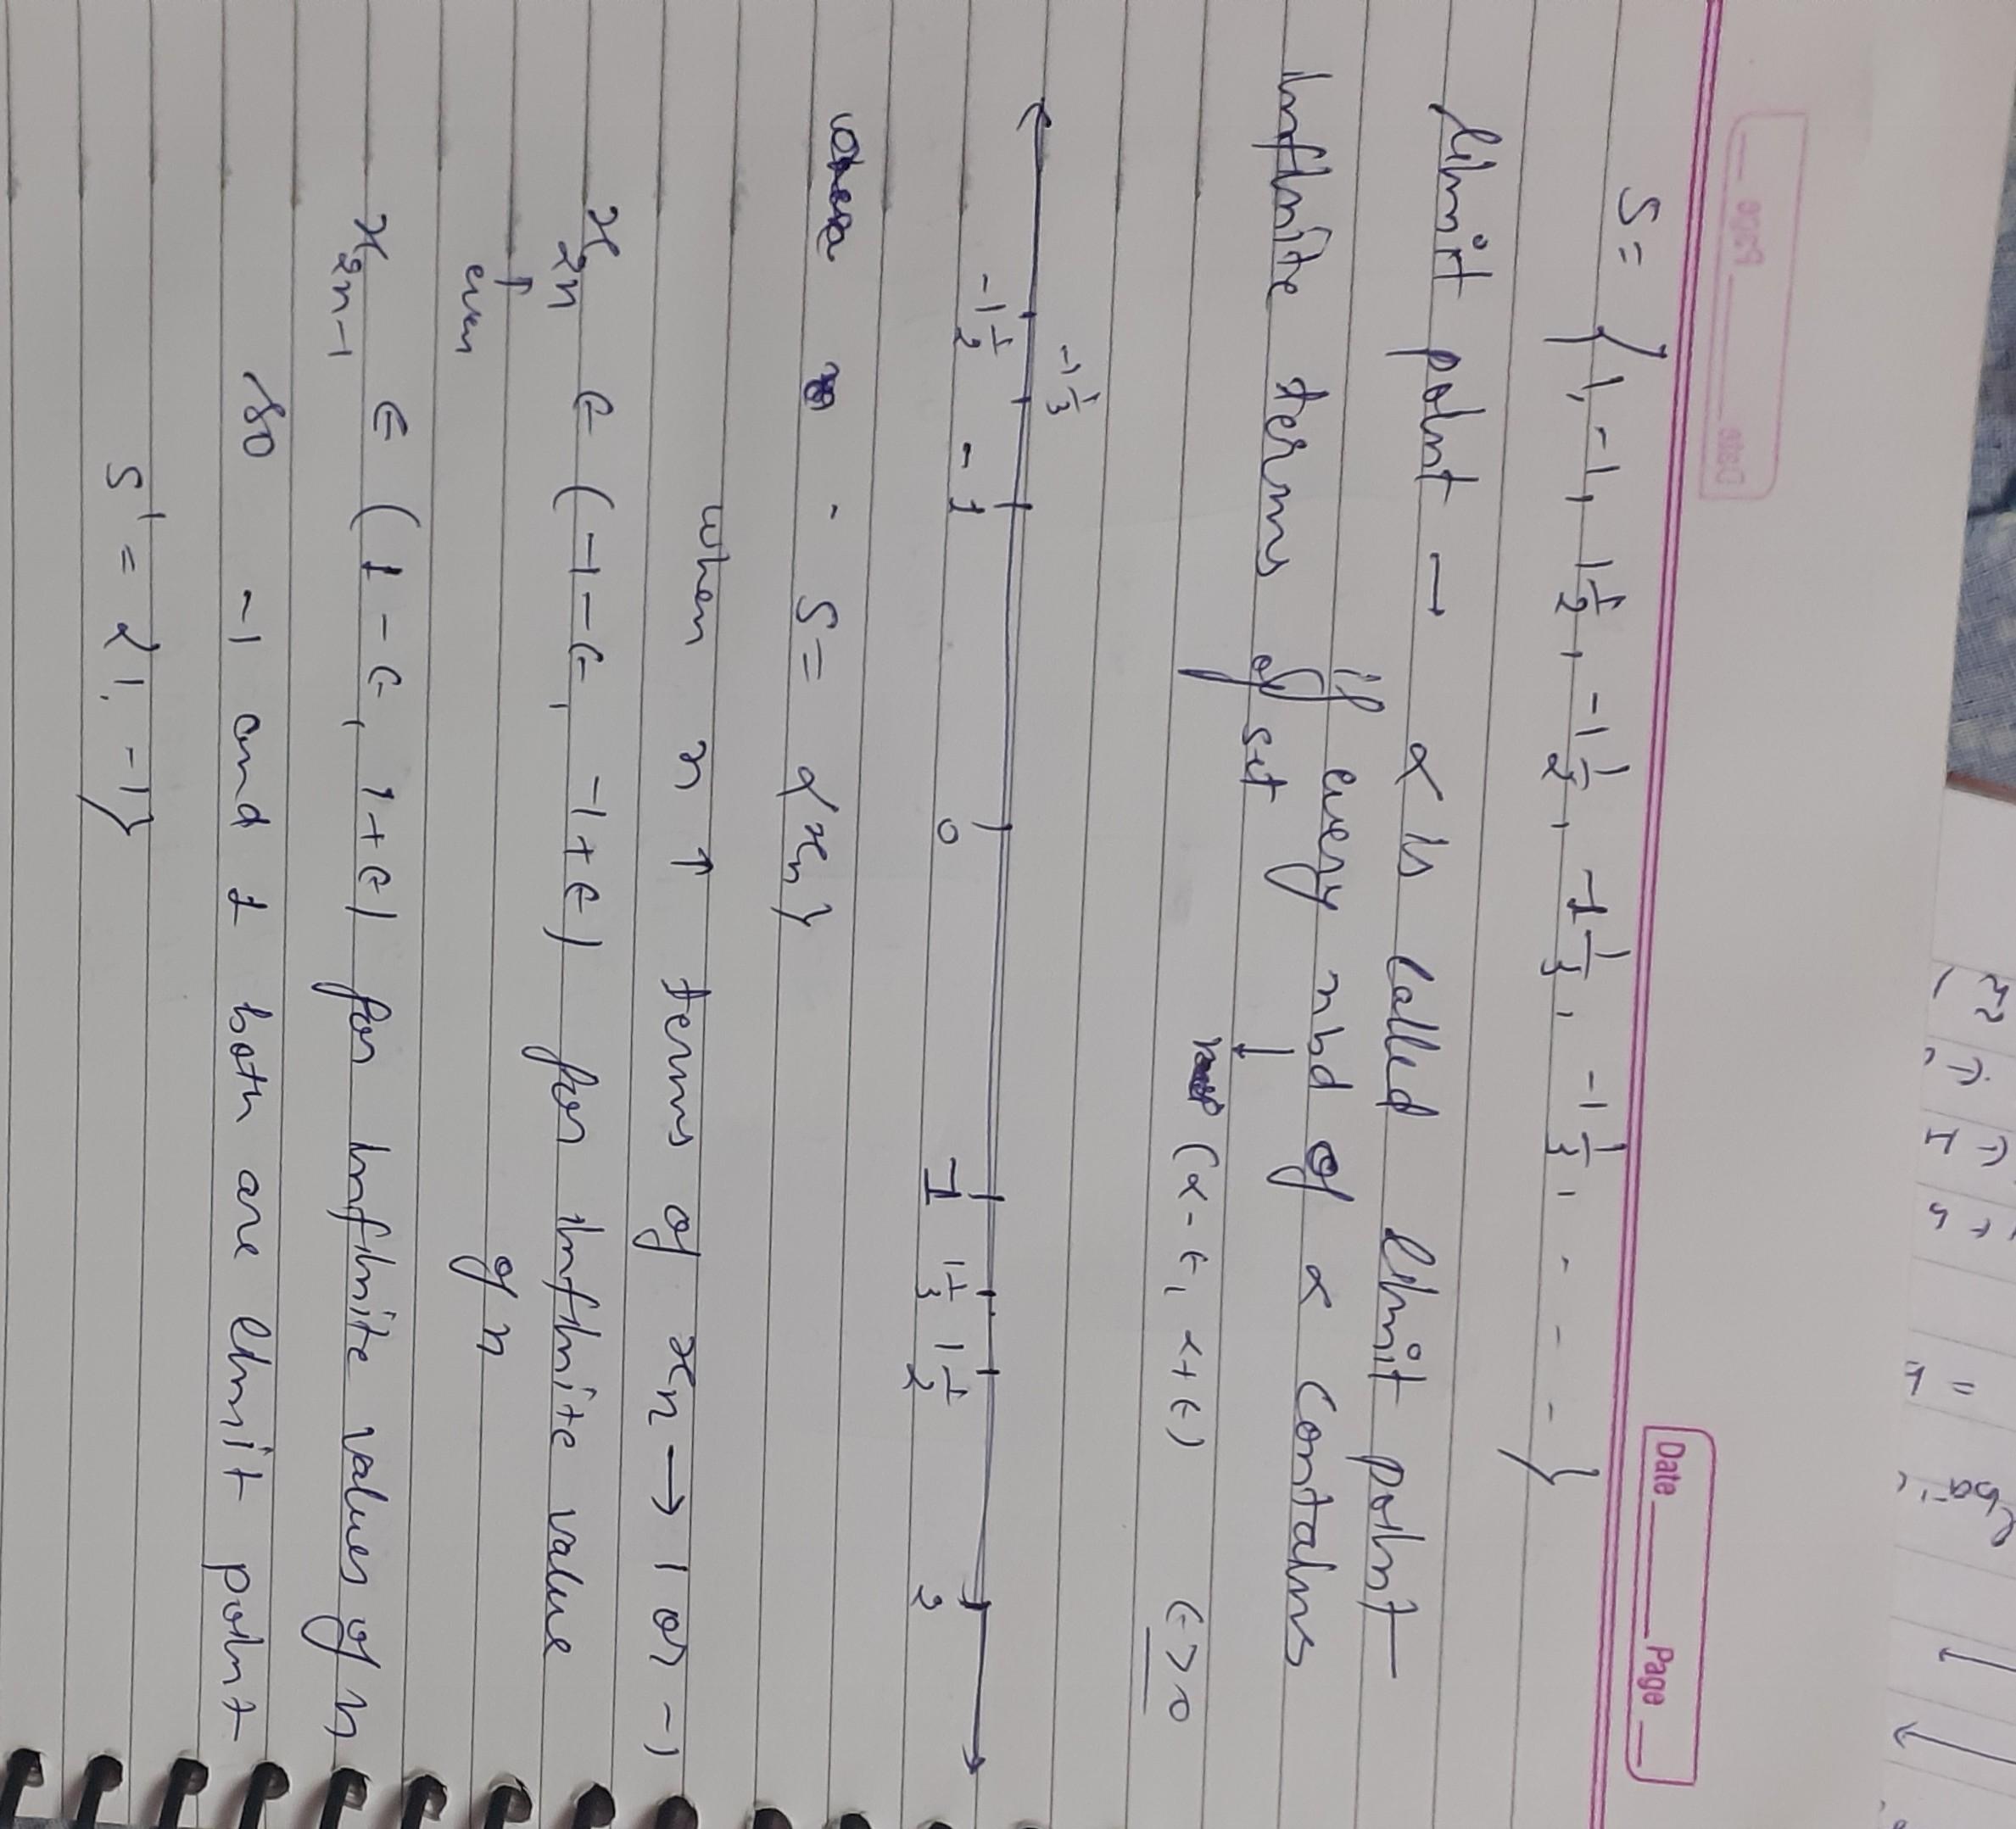 Date ____ Page __
S = { 1, -1, 1 1/2, -1 1/2, 1 1/3, -1 1/3, - - - }
limit point → α is called limit point
if every nbd of α contains
infinite terms of set
(α - ε, α + ε) ε > 0
-1 1/3
-1 1/2 -1 0 1 1 1/3 1 1/2 2
S = {xn}
when n ↑ terms of xn → 1 or -1
x2n ∈ (-1-ε, -1+ε) for infinite value
↑ even of n
x2n-1 ∈ (1-ε, 1+ε) for infinite values of n
so -1 and 1 both are limit point
S' = {1, -1}